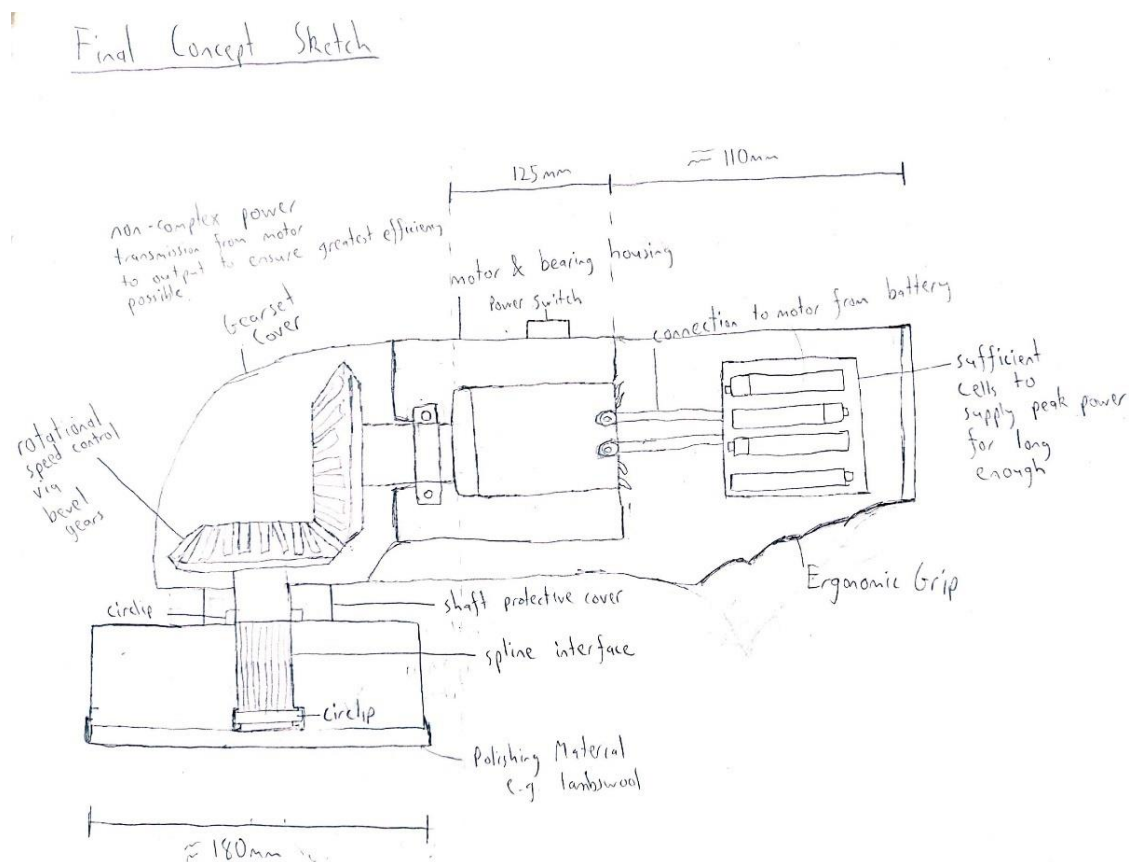 Final Concept Sketch
125mm
≈ 110mm
non-complex power
transmission from motor
to output to ensure greatest efficiency
possible.
motor & bearing housing
Power switch
connection to motor from battery
Gearset
Cover
sufficient
cells to
supply peak power
for long
enough
rotational
speed control
via
bevel
gears
Ergonomic Grip
circlip
shaft protective cover
spline interface
circlip
Polishing Material
e.g lambswool
≈ 180mm